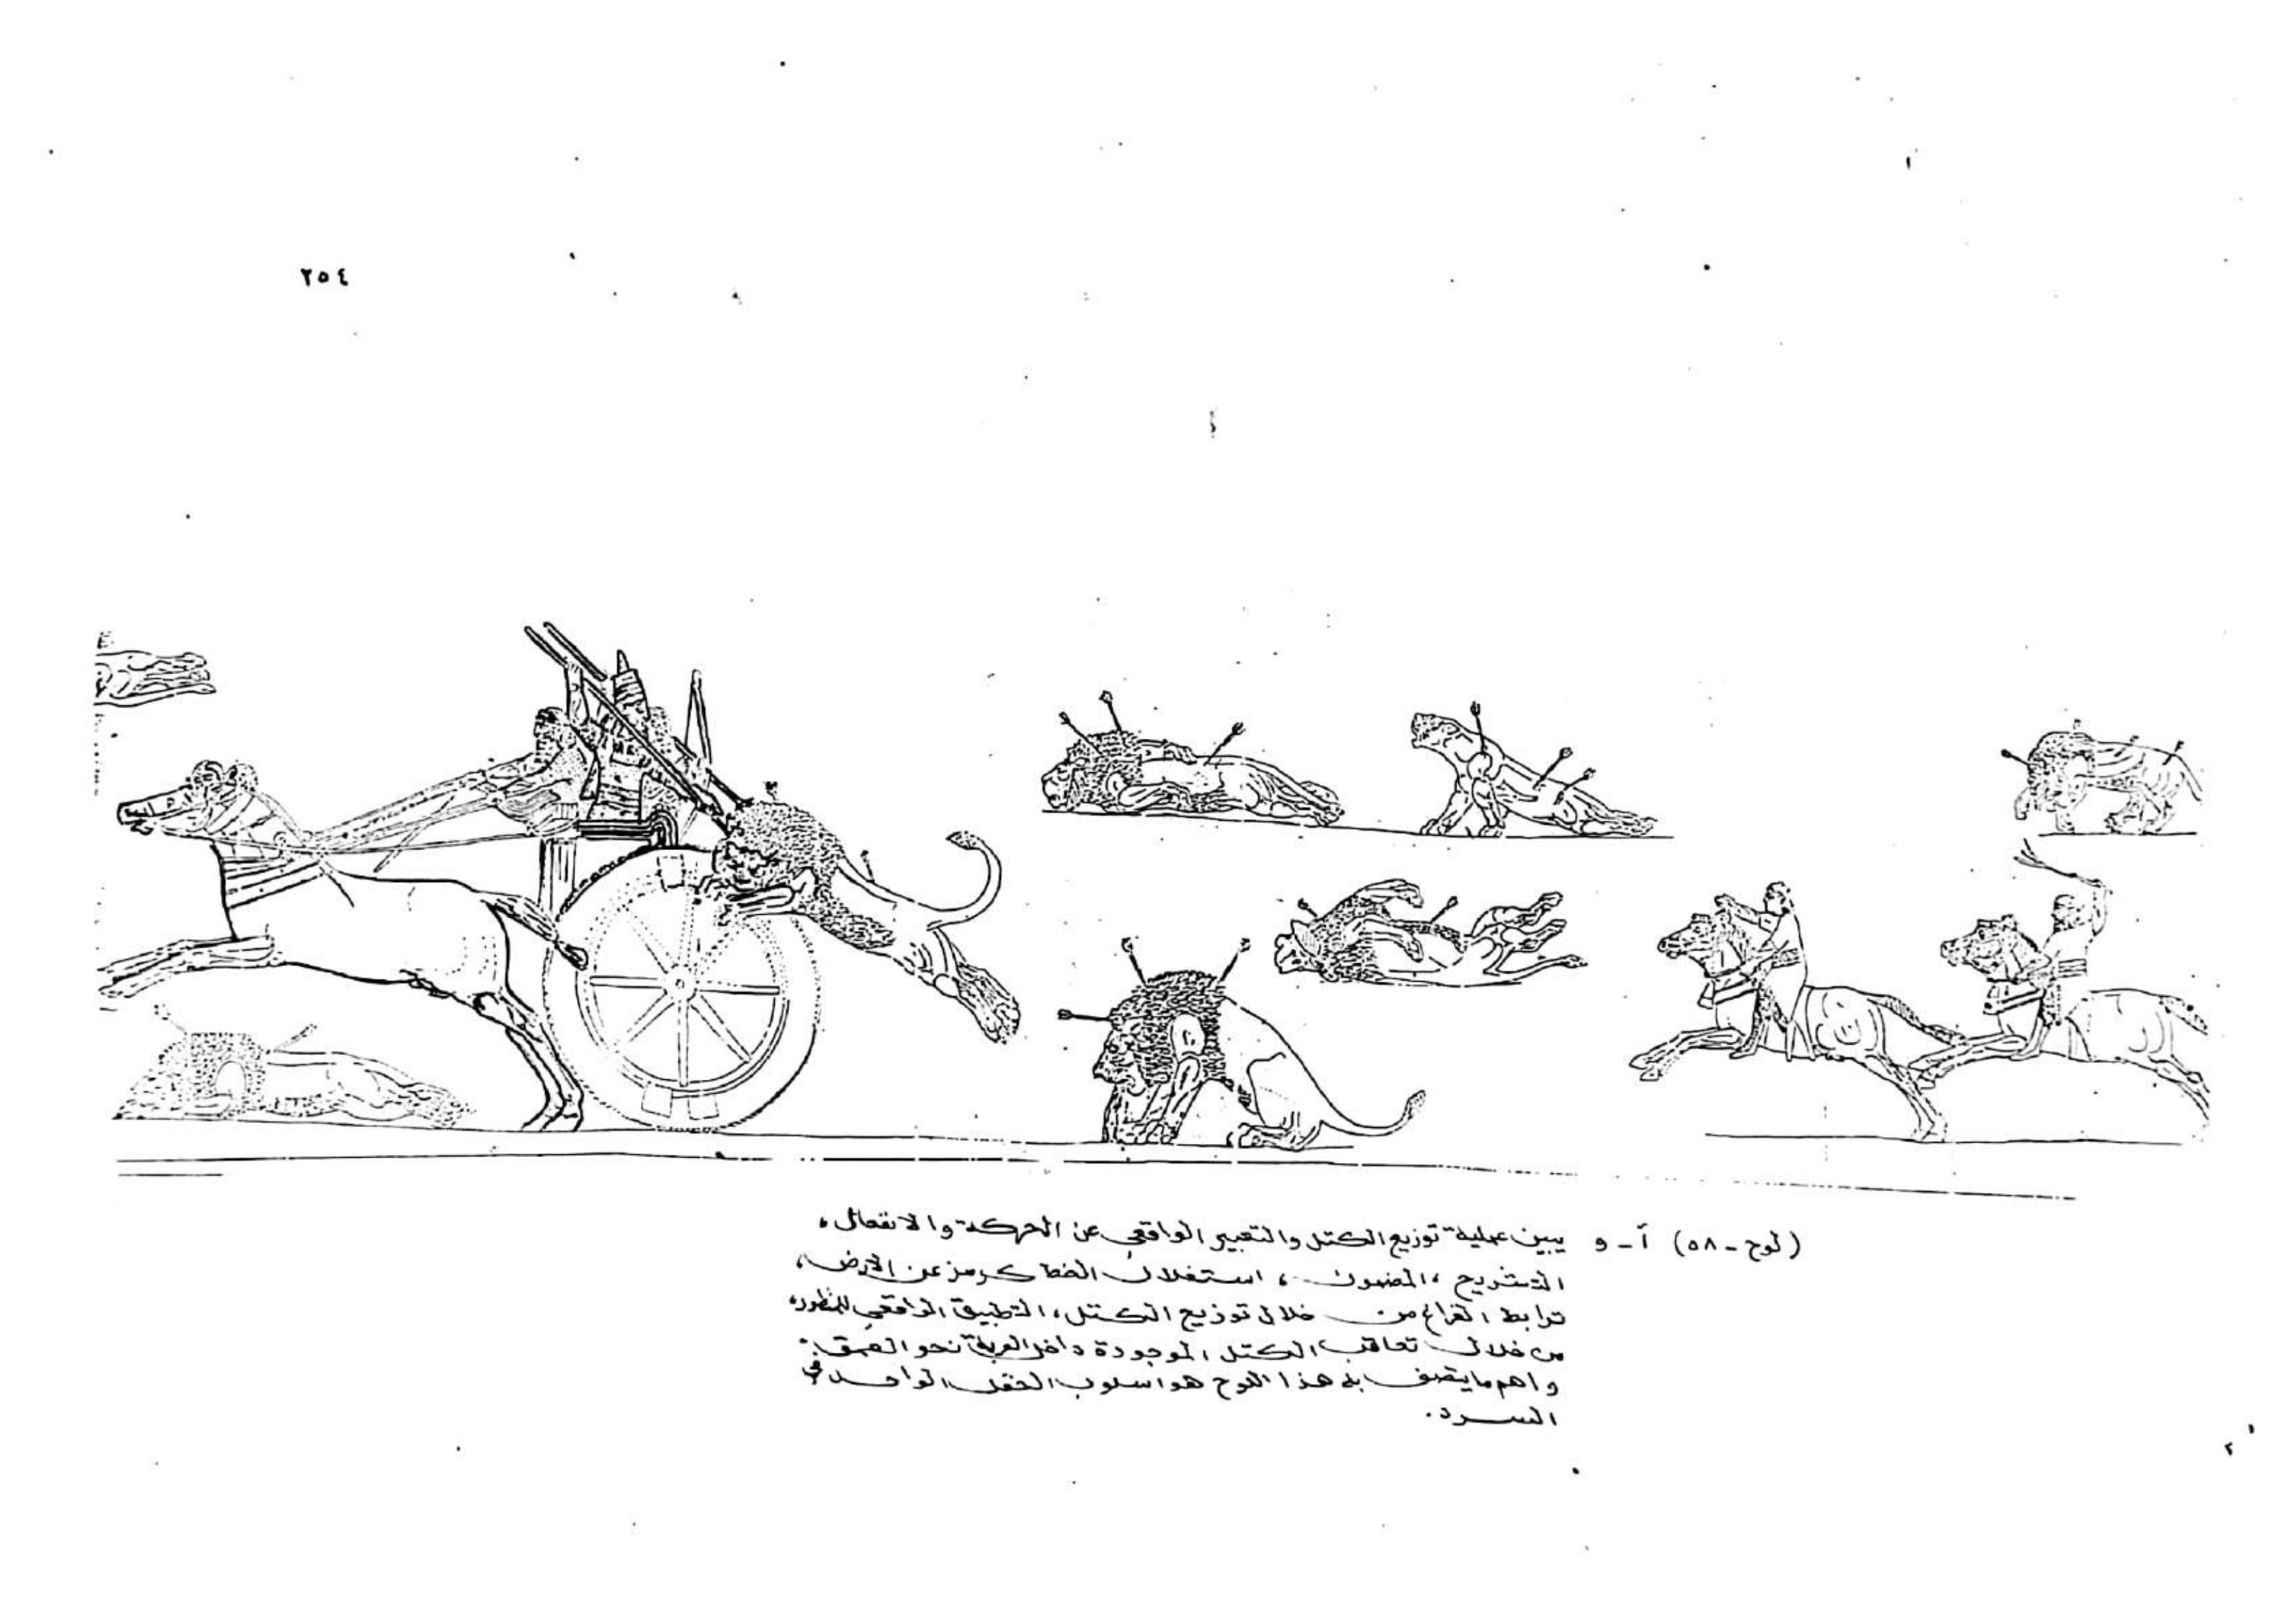 ٢٥٤
(لوح - ٥٨) آ - و يبين عملية توزيع الكتل والتعبير الواقعي عن الحركة والانفعال،
التشريح، المضمون، استغلال الخط كرمز عن الارض،
ترابط الفراغ من خلال توزيع الكتل، التطبيق الواقعي للمنظور،
من خلال تعاقب الكتل الموجودة داخل العربة نحو العمق.
واهم ما يتصف به هذا اللوح هو اسلوب الحقل الواحد في
السرد.